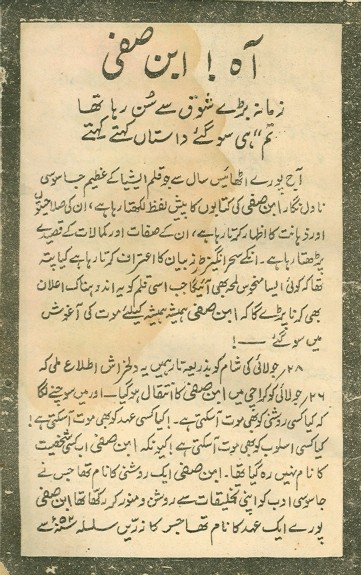 آہ ! ابن صفی
زمانہ بڑے شوق سے سُن رہا تھا
تم "ہی سو گئے داستاں کہتے کہتے
آج پورے اٹھائیس سال سے جو قلم ایشیا کے عظیم جاسوسی
ناول نگار ابن صفی کی کتابوں کا پیش لفظ لکھتا رہا ہے، ان کی صلاحیتوں
اور ذہانت کا اظہار کرتا رہا ہے، ان کے صفات اور کمالات کے قصیدے
پڑھتا رہا ہے۔ انکے سحر انگیز طرز بیان کا اعتراف کرتا رہا ہے کیا پتہ
تھا کہ کوئی ایسا منحوس لمحہ بھی آئیگا جب اسی قلم کو یہ اندوہناک اعلان
بھی کرنا پڑے گا کہ ابن صفی ہمیشہ ہمیشہ کیلئے موت کی آغوش
میں سو گئے ——!
۲۸ جولائی کی شام کو بذریعہ تار ہمیں یہ دلخراش اطلاع ملی کہ
۲۶ جولائی کو کراچی میں ابن صفی کا انتقال ہو گیا — اور میں سوچنے لگا
کہ کیا کسی روشنی کو بھی موت آسکتی ہے۔ اکیا کسی عہد کو بھی موت آسکتی ہے!
کیا کسی اسلوب کو بھی موت آسکتی ہے! کیونکہ ابن صفی اب کسی شخصیت
کا نام نہیں رہ گیا تھا۔ ابن صفی ایک روشنی کا نام تھا جس نے
جاسوسی ادب کو اپنی تخلیقات سے روشن و منور کر رکھا تھا ابن صفی
پورے ایک عہد کا نام تھا جس کا زرّیں سلسلہ ۱۹۵۲ء سے